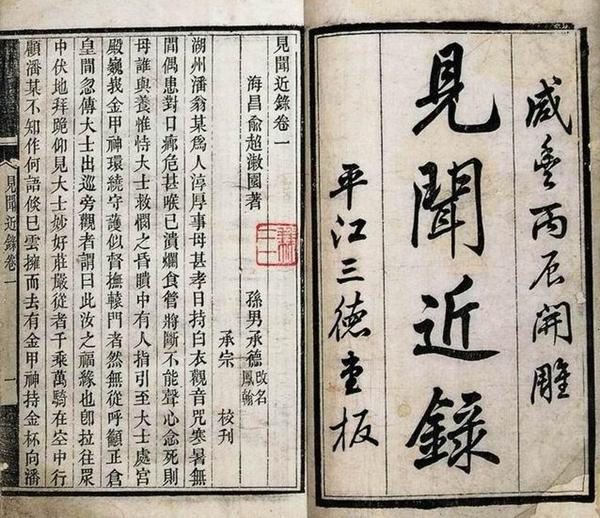 咸豊丙辰開雕
見聞近錄
平江三德堂板
見聞近錄卷一
海昌俞超漵園著
孫男承德改名鳳翰
承宗 校刊
湖州潘翁某爲人淳厚事母甚孝日持白衣觀音咒寒暑無
間偶患對口瘍危甚喉已潰爛食管將斷不能聲心念死則
母誰與養惟恃大士救憫之昏瞶中有人指引至大士處宮
殿巍峩金甲神環繞守護似督撫轅門者然無從呼籲正倉
皇間忽傳大士出巡旁觀者謂曰此汝之福緣也卽拉往眾
中伏地拜跪仰見大士妙好莊嚴從者千乘萬騎在空中行
顧潘某不知作何語倐已雲擁而去有金甲神持金杯向潘
見聞近錄卷一
一